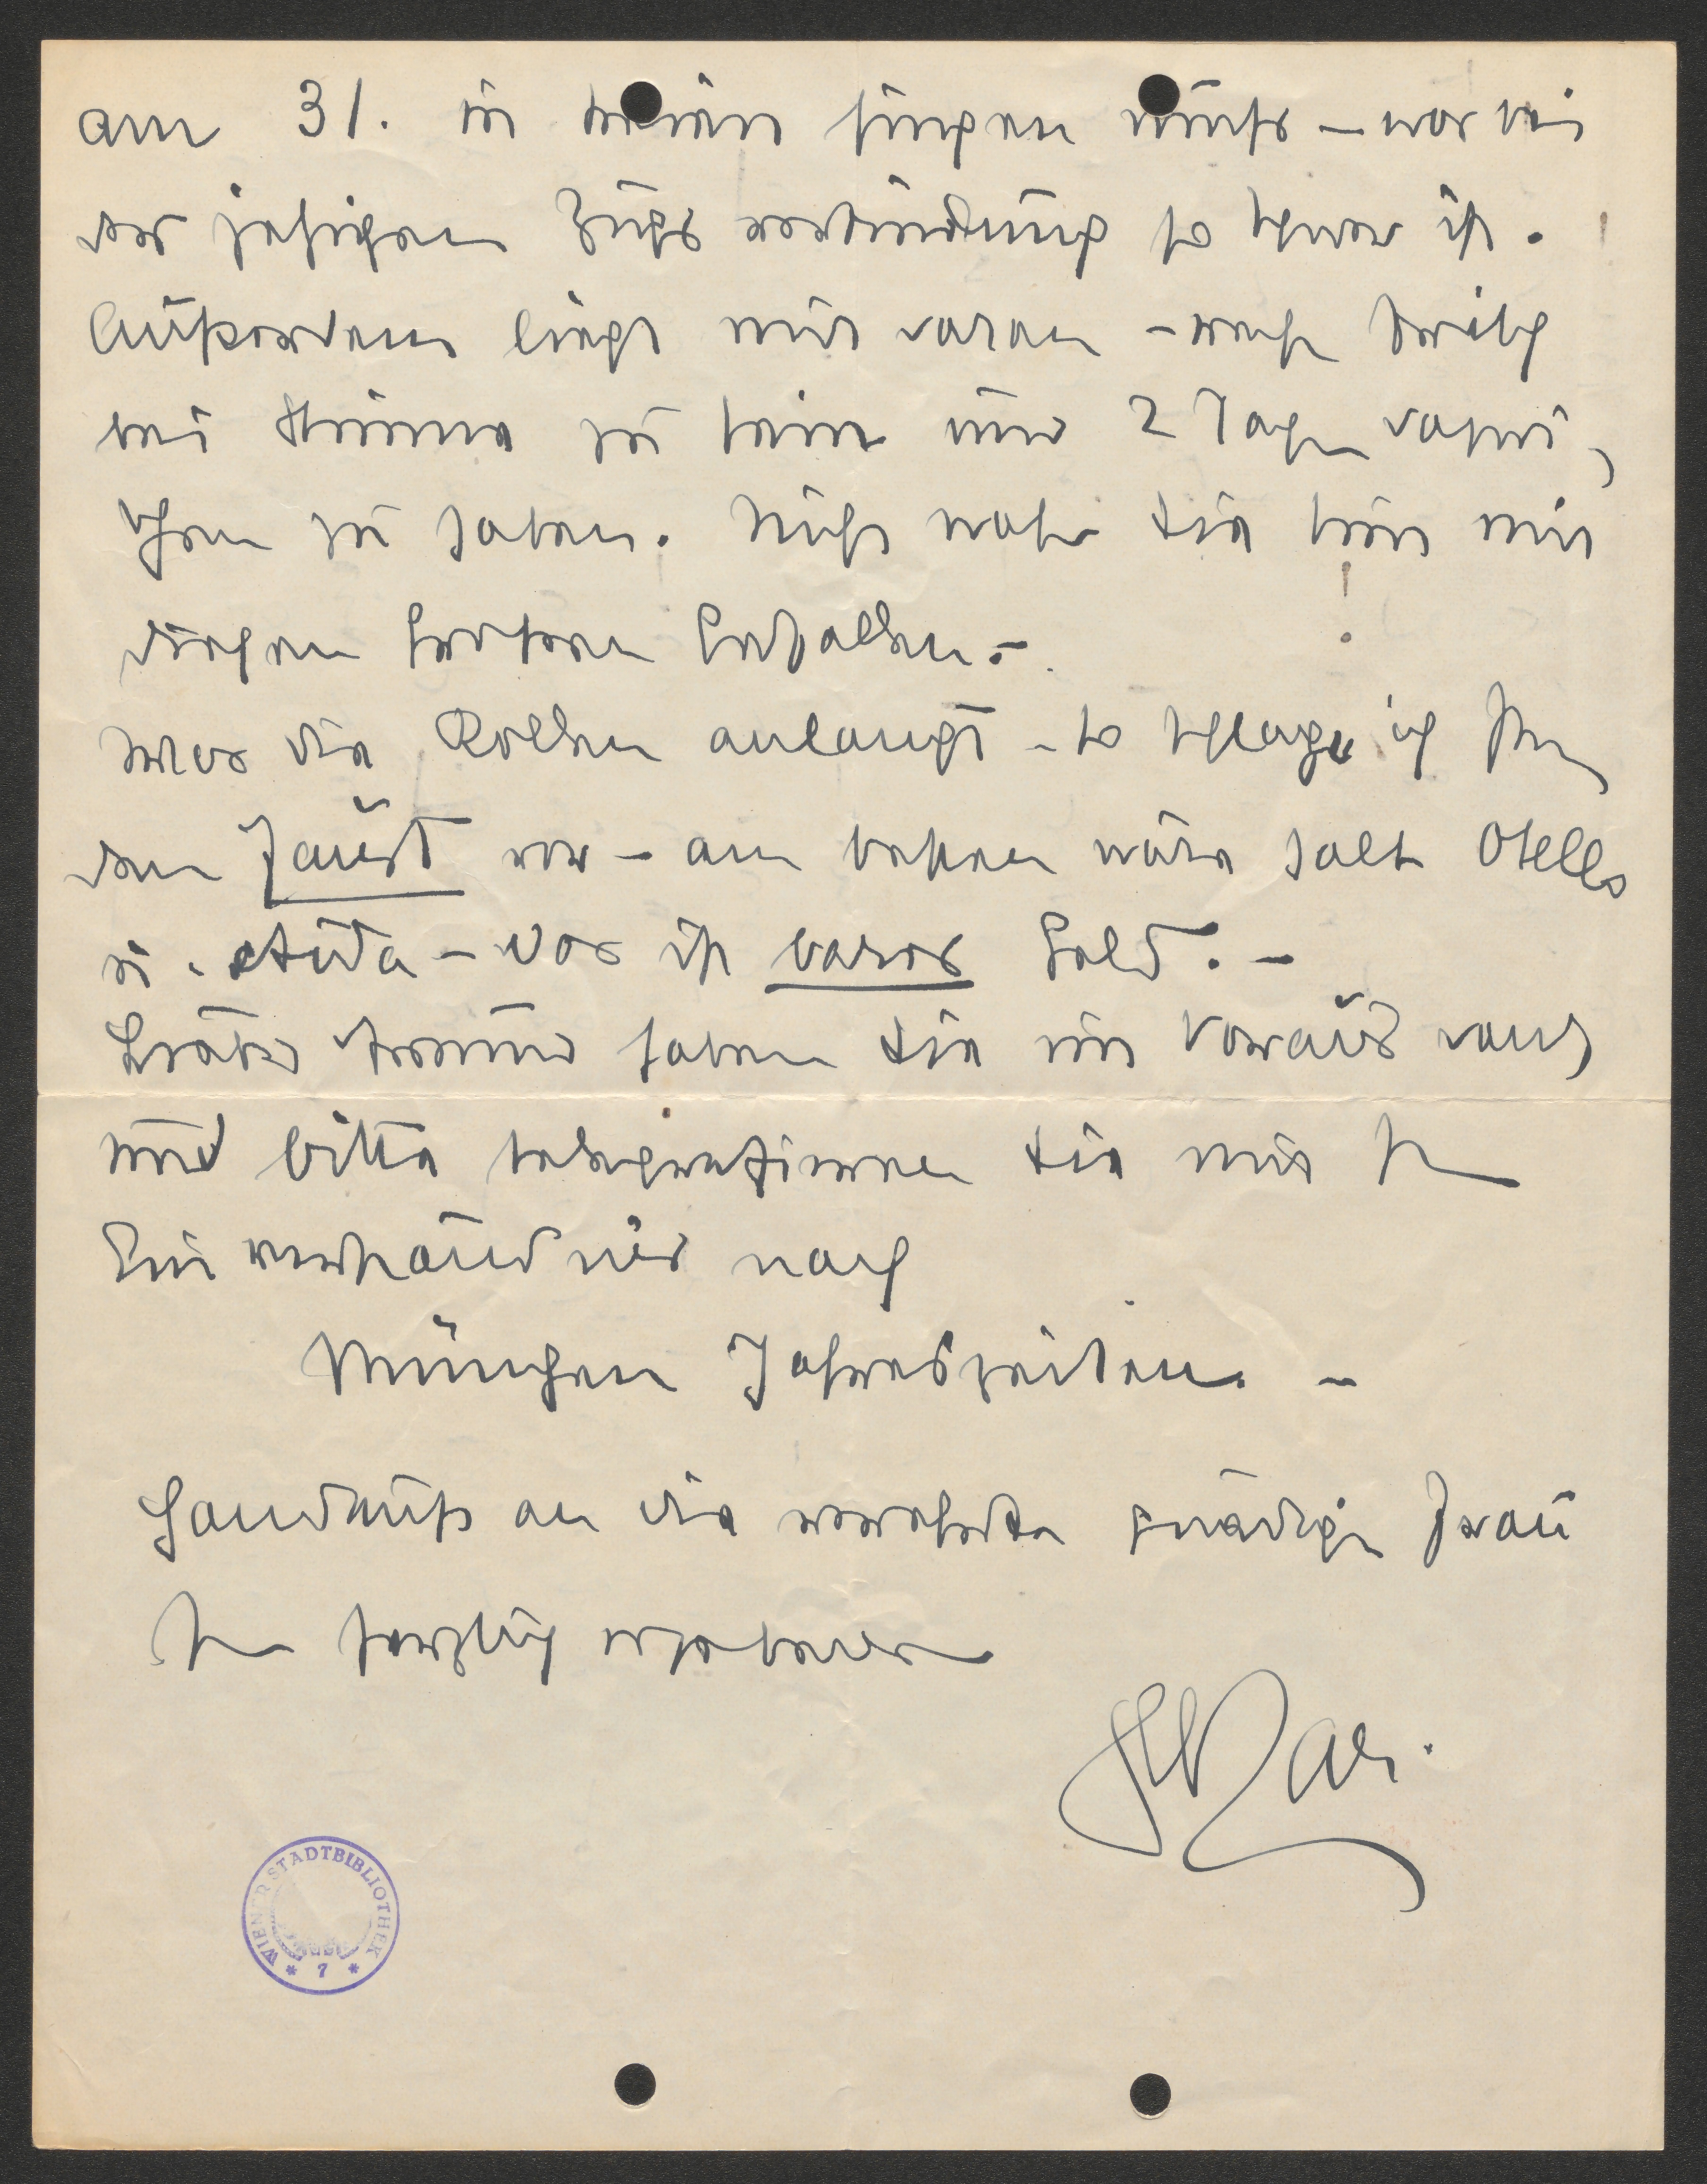 am 31. in Wien singen muß – was bei
der jetzigen Zugsverbindung so schwer ist.
Außerdem liegt mir daran – recht frisch
bei Stimme zu sein und 2 Tage dazwi,
schen zu haben. Nicht wahr Sie tun mir
diesen großen Gefallen. –
Was die Rollen anlangt – so schlage ich Ihn,
den Faust vor – am besten wäre halt Otello
u. Aida – das ist bares Geld. –
Lieber Freund haben Sie im Voraus Dank
und bitte telegrafieren Sie mir Ihr
Einverständnis nach
München Jahreszeiten. –
Handkuß an die verehrte gnädige Frau
Ihr herzlich ergebener
WIENER STADTBIBLIOTHEK
* 7 *